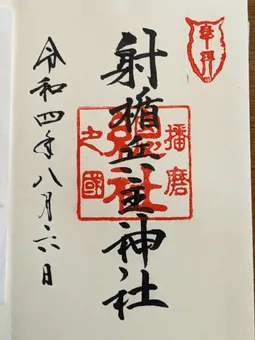 奉拝
播磨
之國
総社
射楯兵主神社
令和四年八月六日